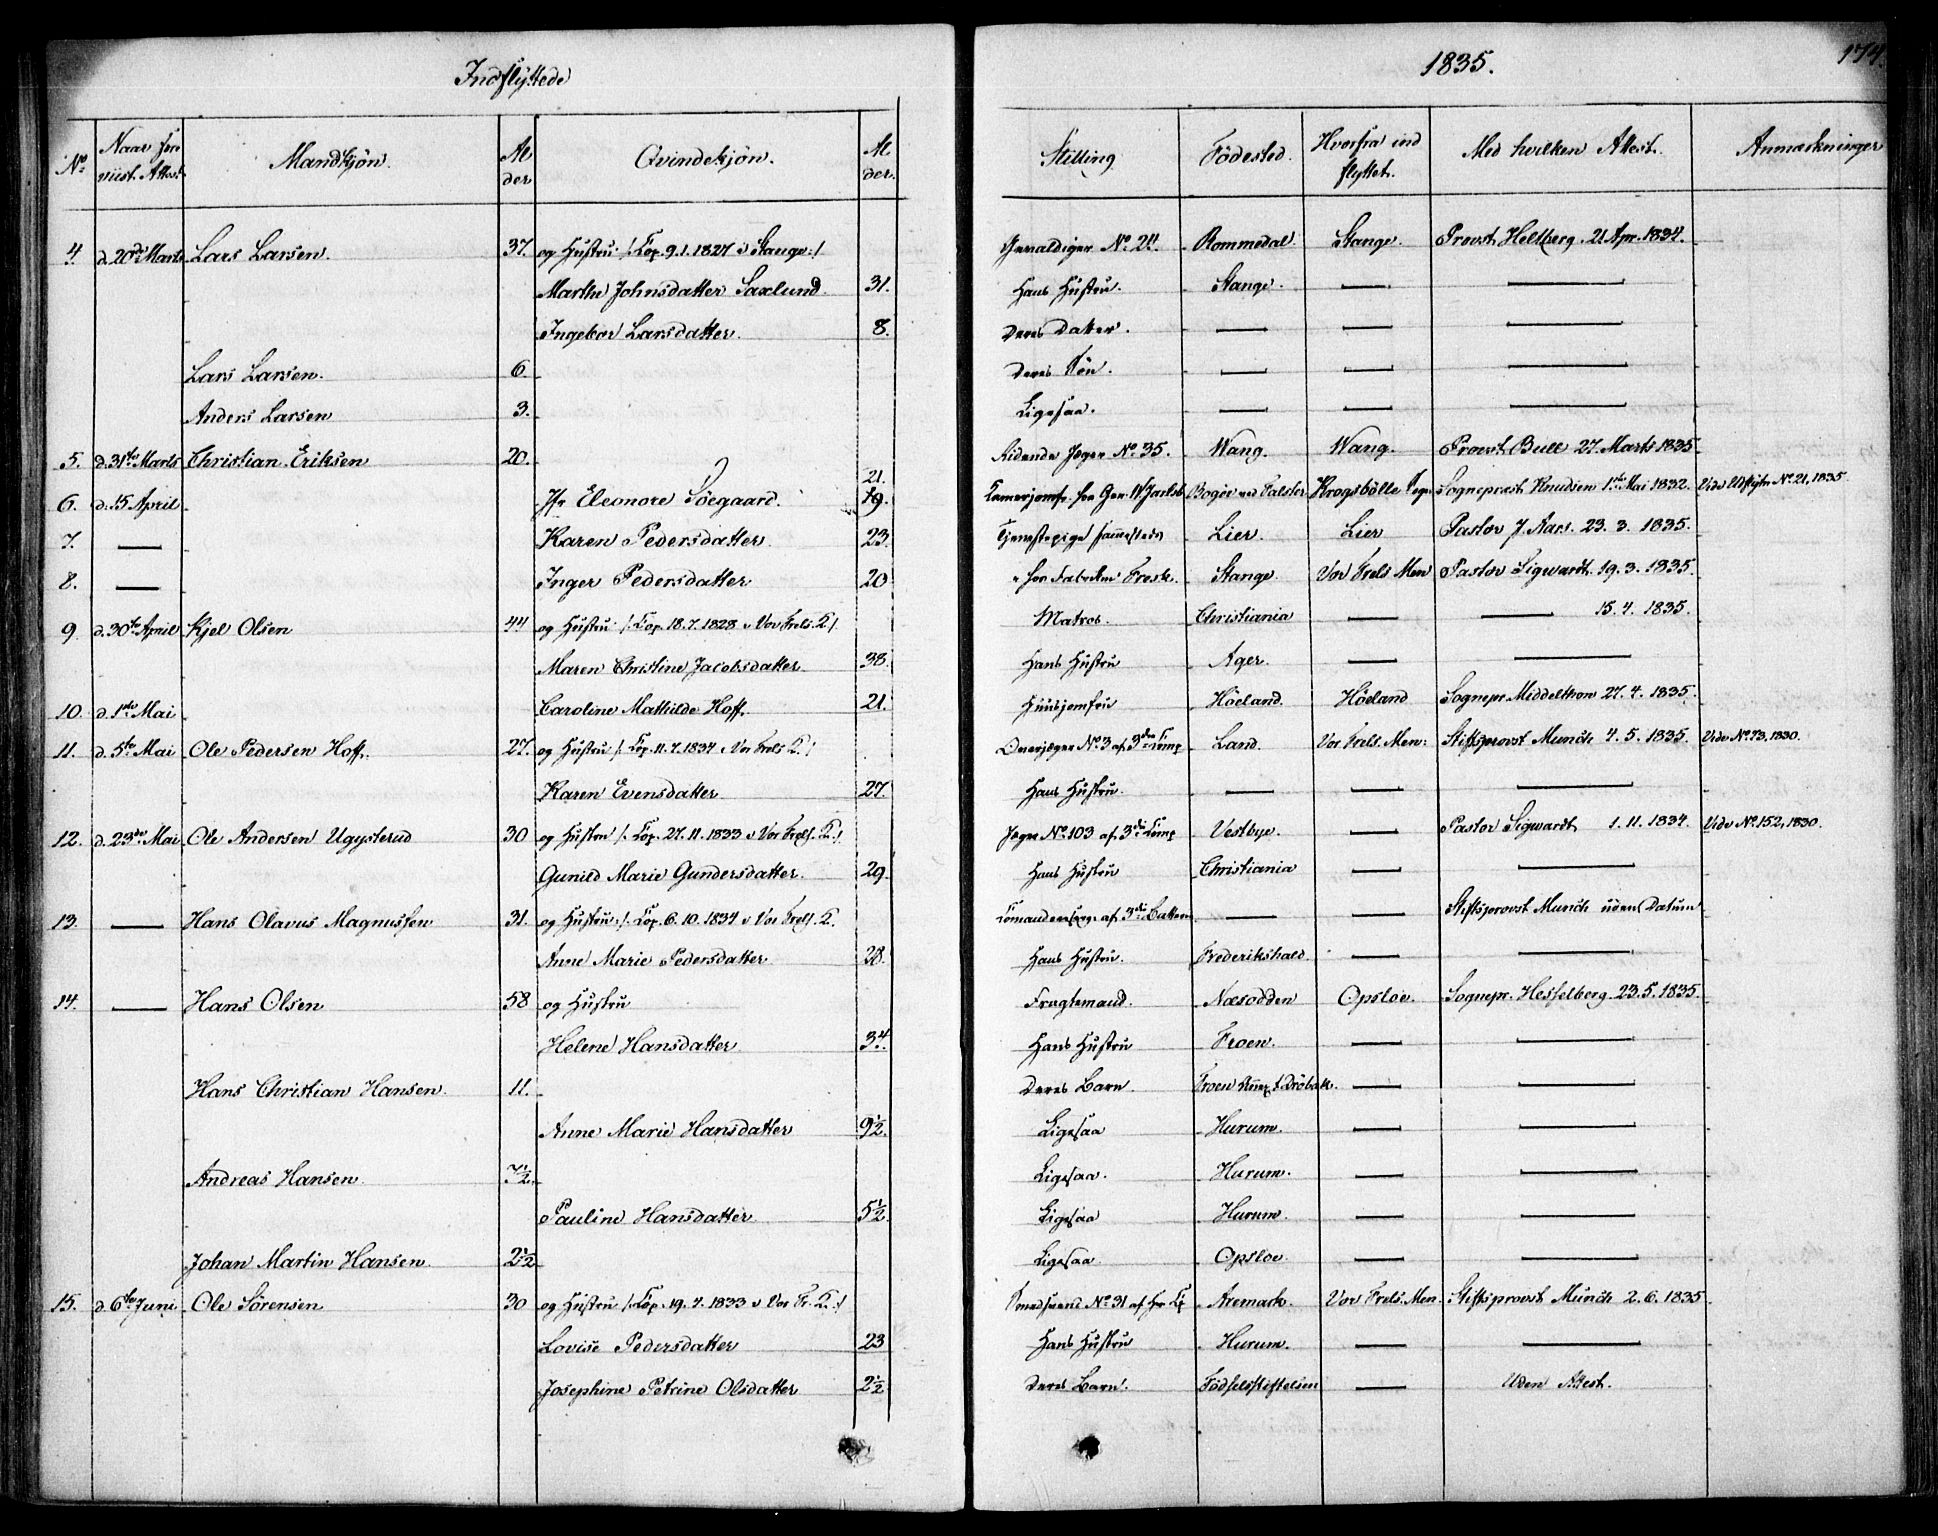 Indflyttede
1835.
174.
No
Naar fore
viist Attest.
Mandkjøn.
Al
der
Qvindekjøn.
Al
der.
Stilling.
Födested.
Hvorfra ind
flyttet.
Med hvilken Attest.
Anmærkninger
4 d. 20de Marts Lars Larsen. 37. og Hustru /: Cop. 9.1.1827 i Stange :/ No 24. Rommedal. Stange. Provst Heltberg. 21 Apr. 1834.
Marthe Johnsdatter Saxlund. 31. Hans Hustru. Stange. — —
Ingebor Larsdatter. 8. Deres Datter. — — —
Lars Larsen. 6. Deres Søn. — — —
Anders Larsen 3. Ligesaa. — — —
5. d. 31te Marts Christian Eriksen 20. Ridende Jæger No 35. Wang. Wang. Provst Bull 27. Marts 1835.
21.
6. d. 15 April Jfr Eleonore Söegaard. 19. Bogöe ved Falster Krogsbölle Sogn Sognepræst Knudsen 1ste Mai 1832. Vide Udflytn. No 21, 1835
7. — Karen Pedersdatter. 23. Tjenestepige sammesteds Lier. Lier Pastor J. Aars. 23. 3. 1835.
8. — Inger Pedersdatter 20 Stange. Vor Frels. Men Pastor Sigwardt. 19. 3. 1835.
9. d. 30te April Kjel Olsen 44 og Hustru /: Cop. 18. 7. 1828 i Vor Frels. K /. Matros. Christiania — — 15. 4. 1835.
Maren Christine Jacobsdatter. 38. Hans Hustru Ager. — —
10. d. 1ste Mai Caroline Mathilde Hoff. 21. Huusjomfru Höeland. Höeland Sognepr. Middelthon 27. 4. 1835.
11. d. 5te Mai Ole Pedersen Hoff. 27. og Hustru /: Cop. 11. 7. 1834 i Vor Frels K :/ Overjæger No 3 af 3die Comp Land. Vor Frels. Men: Stiftsprovst Munch 4. 5. 1835. Vide No 73, 1830.
Karen Evensdatter. 27. Hans Hustru. — — —
12. d. 23de Mai Ole Andersen Ugysterud 30 og Hustru /: Cop. 27. 11. 1833 i Vor Frels. K :/ Jæger No 103 af 3die Comp Vestbye. — Pastor Sigwardt 1. 11. 1834. Vide No 152, 1830.
Gunild Marie Gundersdatter. 29. Hans Hustru Christiania — —
13. — Hans Olavus Magnussen 31. og Hustru /: Cop. 6. 10. 1834 i Vor Frels. K. — — Stiftsprovst Munch uden Datum
Anne Marie Pedersdatter. 28. Hans Hustru. Frederikshald — —
14. — Hans Olsen 58 og Hustru Fragtemand. Næsodden Opsloe. Sognepr. Hesselberg. 23. 5. 1835.
Helene Hansdatter. 34. Hans Hustru Froen. — —
Hans Christian Hansen. 11. Deres Barn. Froen Dröbak. — —
Anne Marie Hansdatter 9½. Ligesaa Hurum. — —
Andreas Hansen. 7½. Ligesaa. Hurum. — —
Pauline Hansdatter 5½. Ligesaa Hurum. — —
Johan Martin Hansen. 2½ Ligesaa Opsloe. — —
15. d. 6te Juni. Ole Sörensen 30 og Hustru /: Cop. 19. 7. 1833 i Vor Fr. K. :/ No 31 Aremark. Vor Frels. Men. Stiftsprovst Munch 2. 6. 1835
Lovise Pedersdatter 23 Hans Hustru Hurum. — —
Josephine Petrine Olsdatter 2½ Deres Barn. Födselsstiftelsen — Uden Attest.